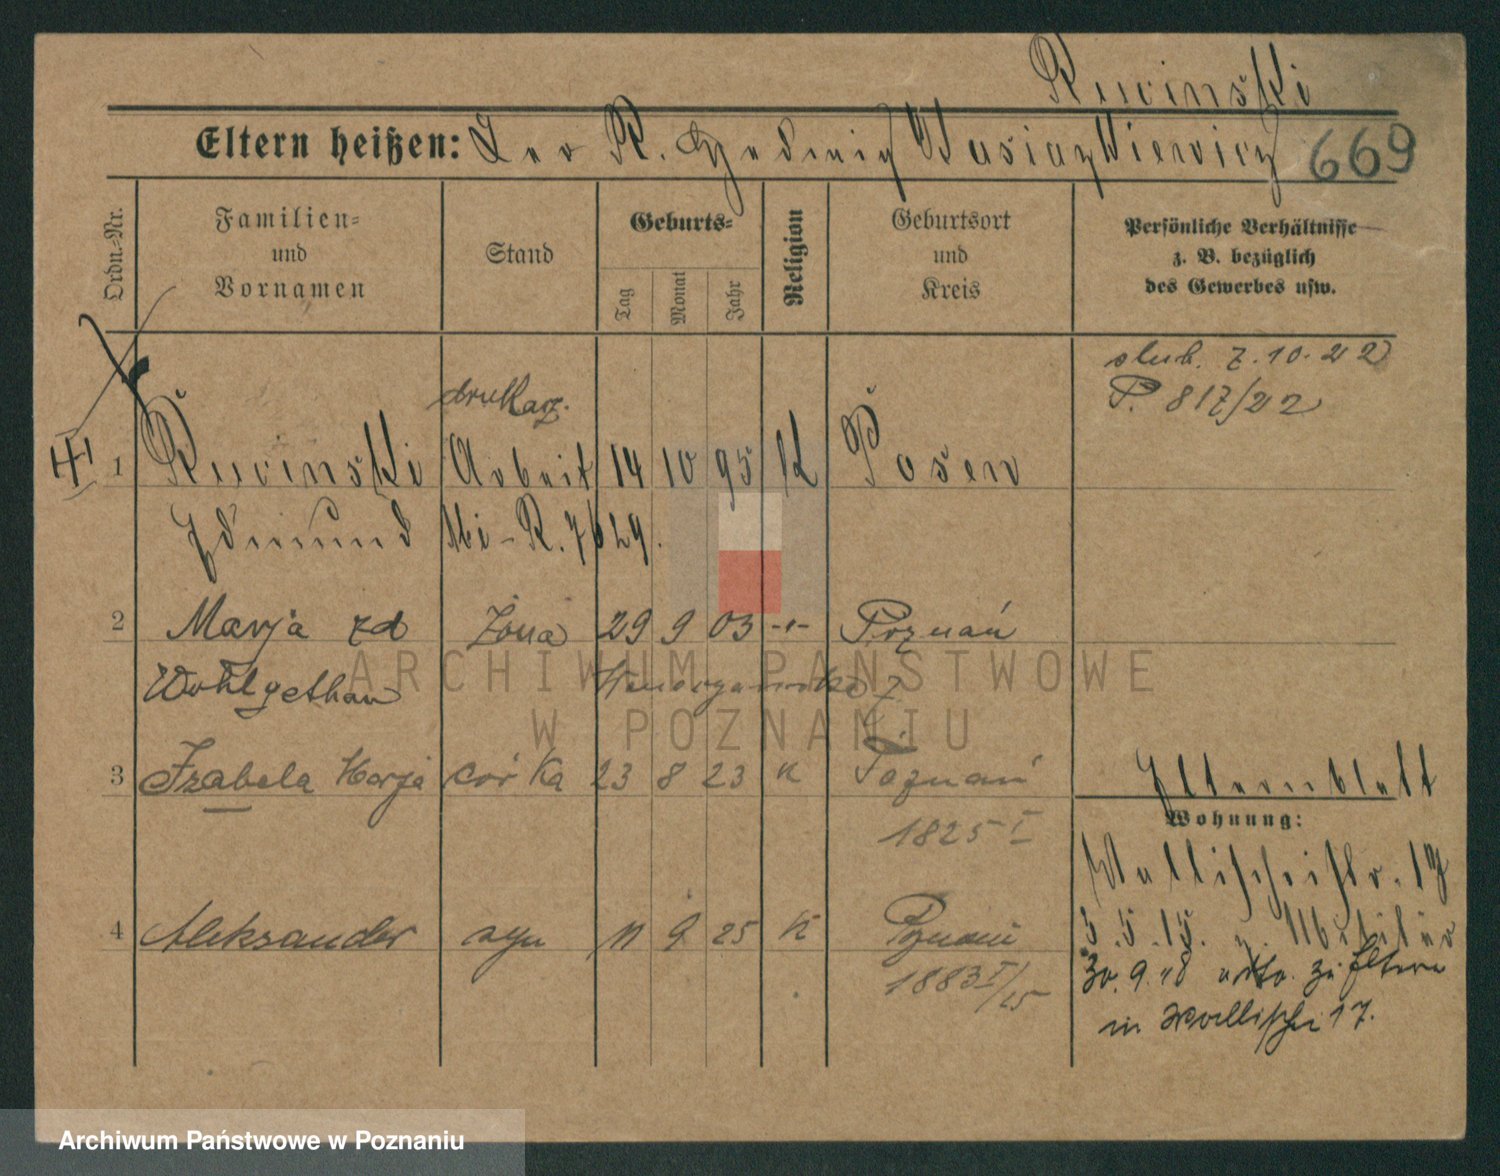 Rucinski
Eltern heißen: Leo R. Hedwig Wasiazkiewicz 669
Ordn.-Nr.
Familien-
und
Vornamen
Stand
Geburts-
Tag
Monat
Jahr
Religion
Geburtsort
und
Kreis
Persönliche Verhältnisse
z. B. bezüglich
des Gewerbes usw.
slub. 7.10.22
P. 817/22
drukarz.
1 Rucinski Arbeit 14 10 95 K Posen
Edmund Mi-R. 7629.
2 Marja zd żona 29 9 03 -"- Poznań
Wohlgethan
3 Izabela Marja córka 23 8 23 K Poznań
1825 I
Elternblatt
Wohnung:
Wallischeistr. 17
4 Aleksander syn 11 9 25 K Poznań
5.5.15. z. Militär
1883 I/25
30.9.18 zu Eltern
in Wallischei 17.
ARCHIWUM PAŃSTWOWE
W POZNANIU
Archiwum Państwowe w Poznaniu